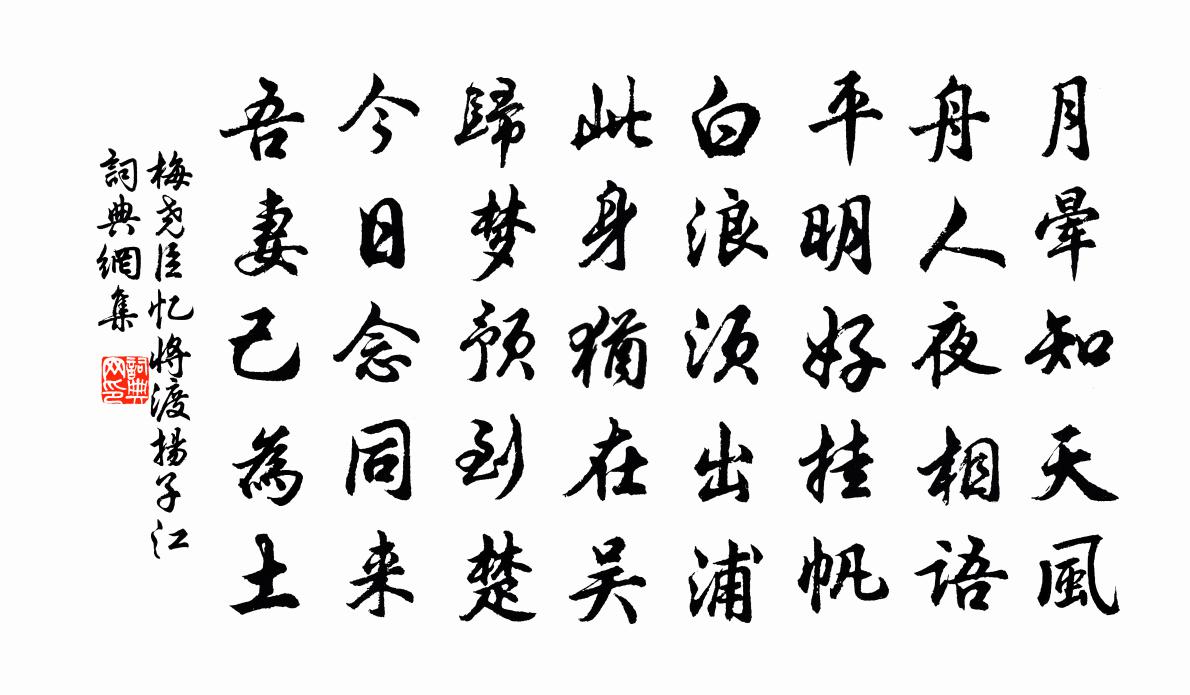 月暈知天風
舟人夜相語
平明好挂帆
白浪须出浦
此身猶在吴
歸梦预到楚
今日念同来
吾妻己為土
梅尧臣忆将渡揚子江
詞典網集
詞典网印